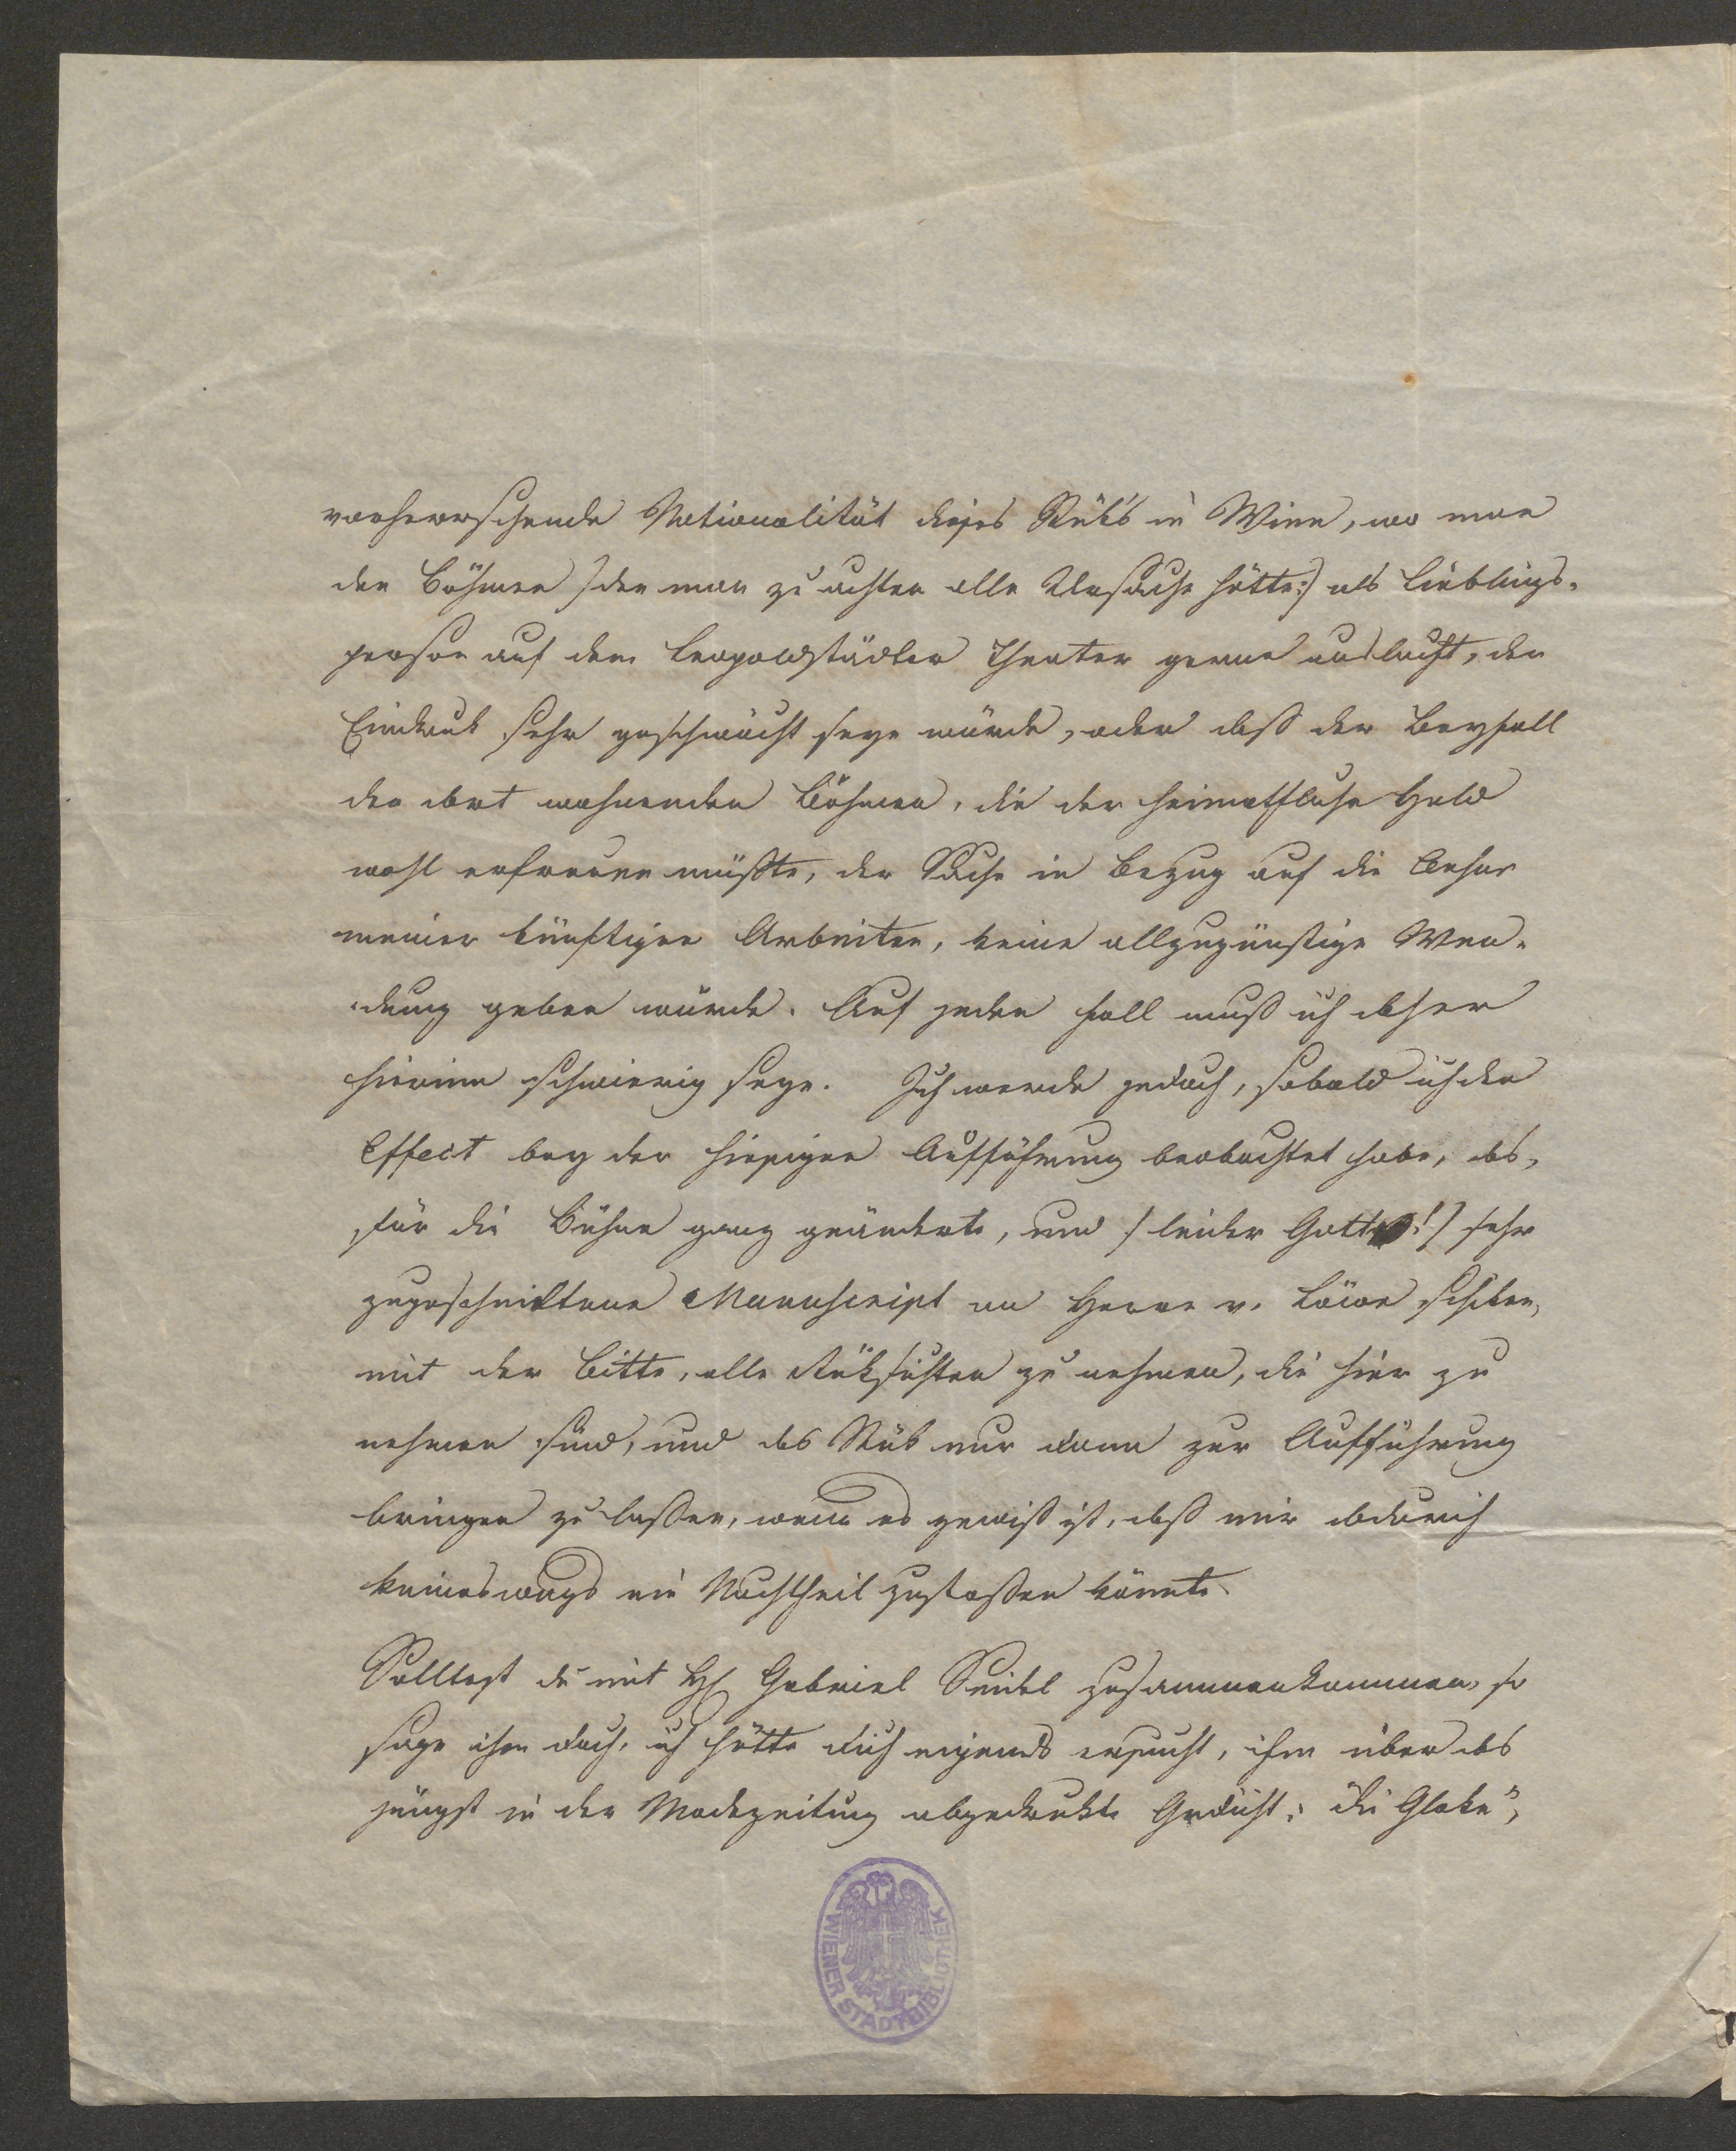 vorherrschende Nationalität dieses Stüks in Wien, wo man
den Böhmen /:den man zu achten alle Ursache hätte:/ als Lieblings-
person auf dem Leopoldstädter Theater gerne auslacht, den
Eindruk sehr geschwächt seyn würde, oder daß der Beyfall
der dort wohnenden Böhmen, die der heimathliche Held
wohl erfreuen müßte, der Sache in Bezug auf die Censur
meiner künftigen Arbeiten, keine allzugünstige Wen-
-dung geben würde. Auf jeden Fall muß ich daher
hierinn schwierig seyn. Ich werde jedoch, sobald ich den
Effect bey der hiesigen Aufführung beobachtet habe, das,
für die Bühne ganz geänderte, und /:leider Gottes!:/ sehr
zugeschnittene Manuscript an Herrn v. Löwe schiken,
mit der Bitte, alle Rüksichten zu nehmen, die hier zu
nehmen sind, und das Stük nur dann zur Aufführung
bringen zu lassen, wenn es gewiß ist, daß mir dadurch
keineswegs ein Nachtheil zustossen könnte.
Solltest du mit H Gabriel Seidel zusammenkommen, so
sage ihm doch, ich hätte dich eigends ersucht, ihm über das
jüngst in der Modezeitung abgedrukte Gedicht: "die Gloke",
WIENER STADTBIBLIOTHEK